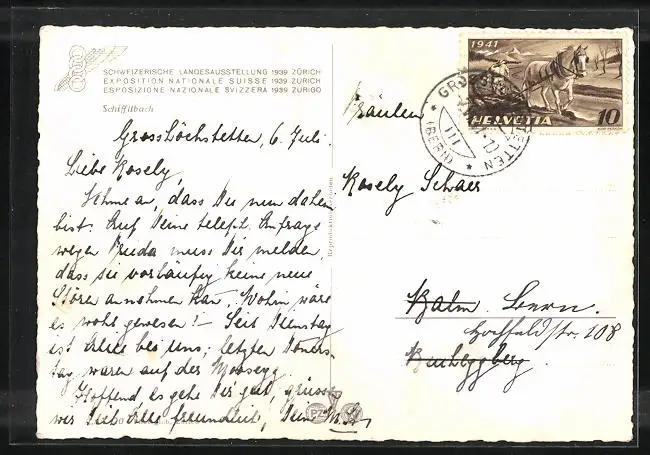 SCHWEIZERISCHE LANDESAUSSTELLUNG 1939 ZÜRICH
EXPOSITION NATIONALE SUISSE 1939 ZÜRICH
ESPOSIZIONE NAZIONALE SVIZZERA 1939 ZURIGO
Schifflibach
Grosshöchstetten, 6. Juli.
Liebe Rosely,
Nehme an, dass Du nun daheim
bist. Auf Deine teleph. Anfrage
wegen Frieda muss Dir melden,
dass sie vorläufig keine neue
Stören annehmen kan. Wohin wäre
es wohl gewesen! - Seit Dienstag
ist bei uns; letzten Donners-
tag waren auf der Moosegg.
Hoffend es gehe Dir gut, grüssen
wir Dich alle freundlich, Dein
Fräulein
Rosely Schaer
Balm. Bern.
Hochfeldstr. 108
Bucheggberg.
1941
HELVETIA 10
(BERN)
III